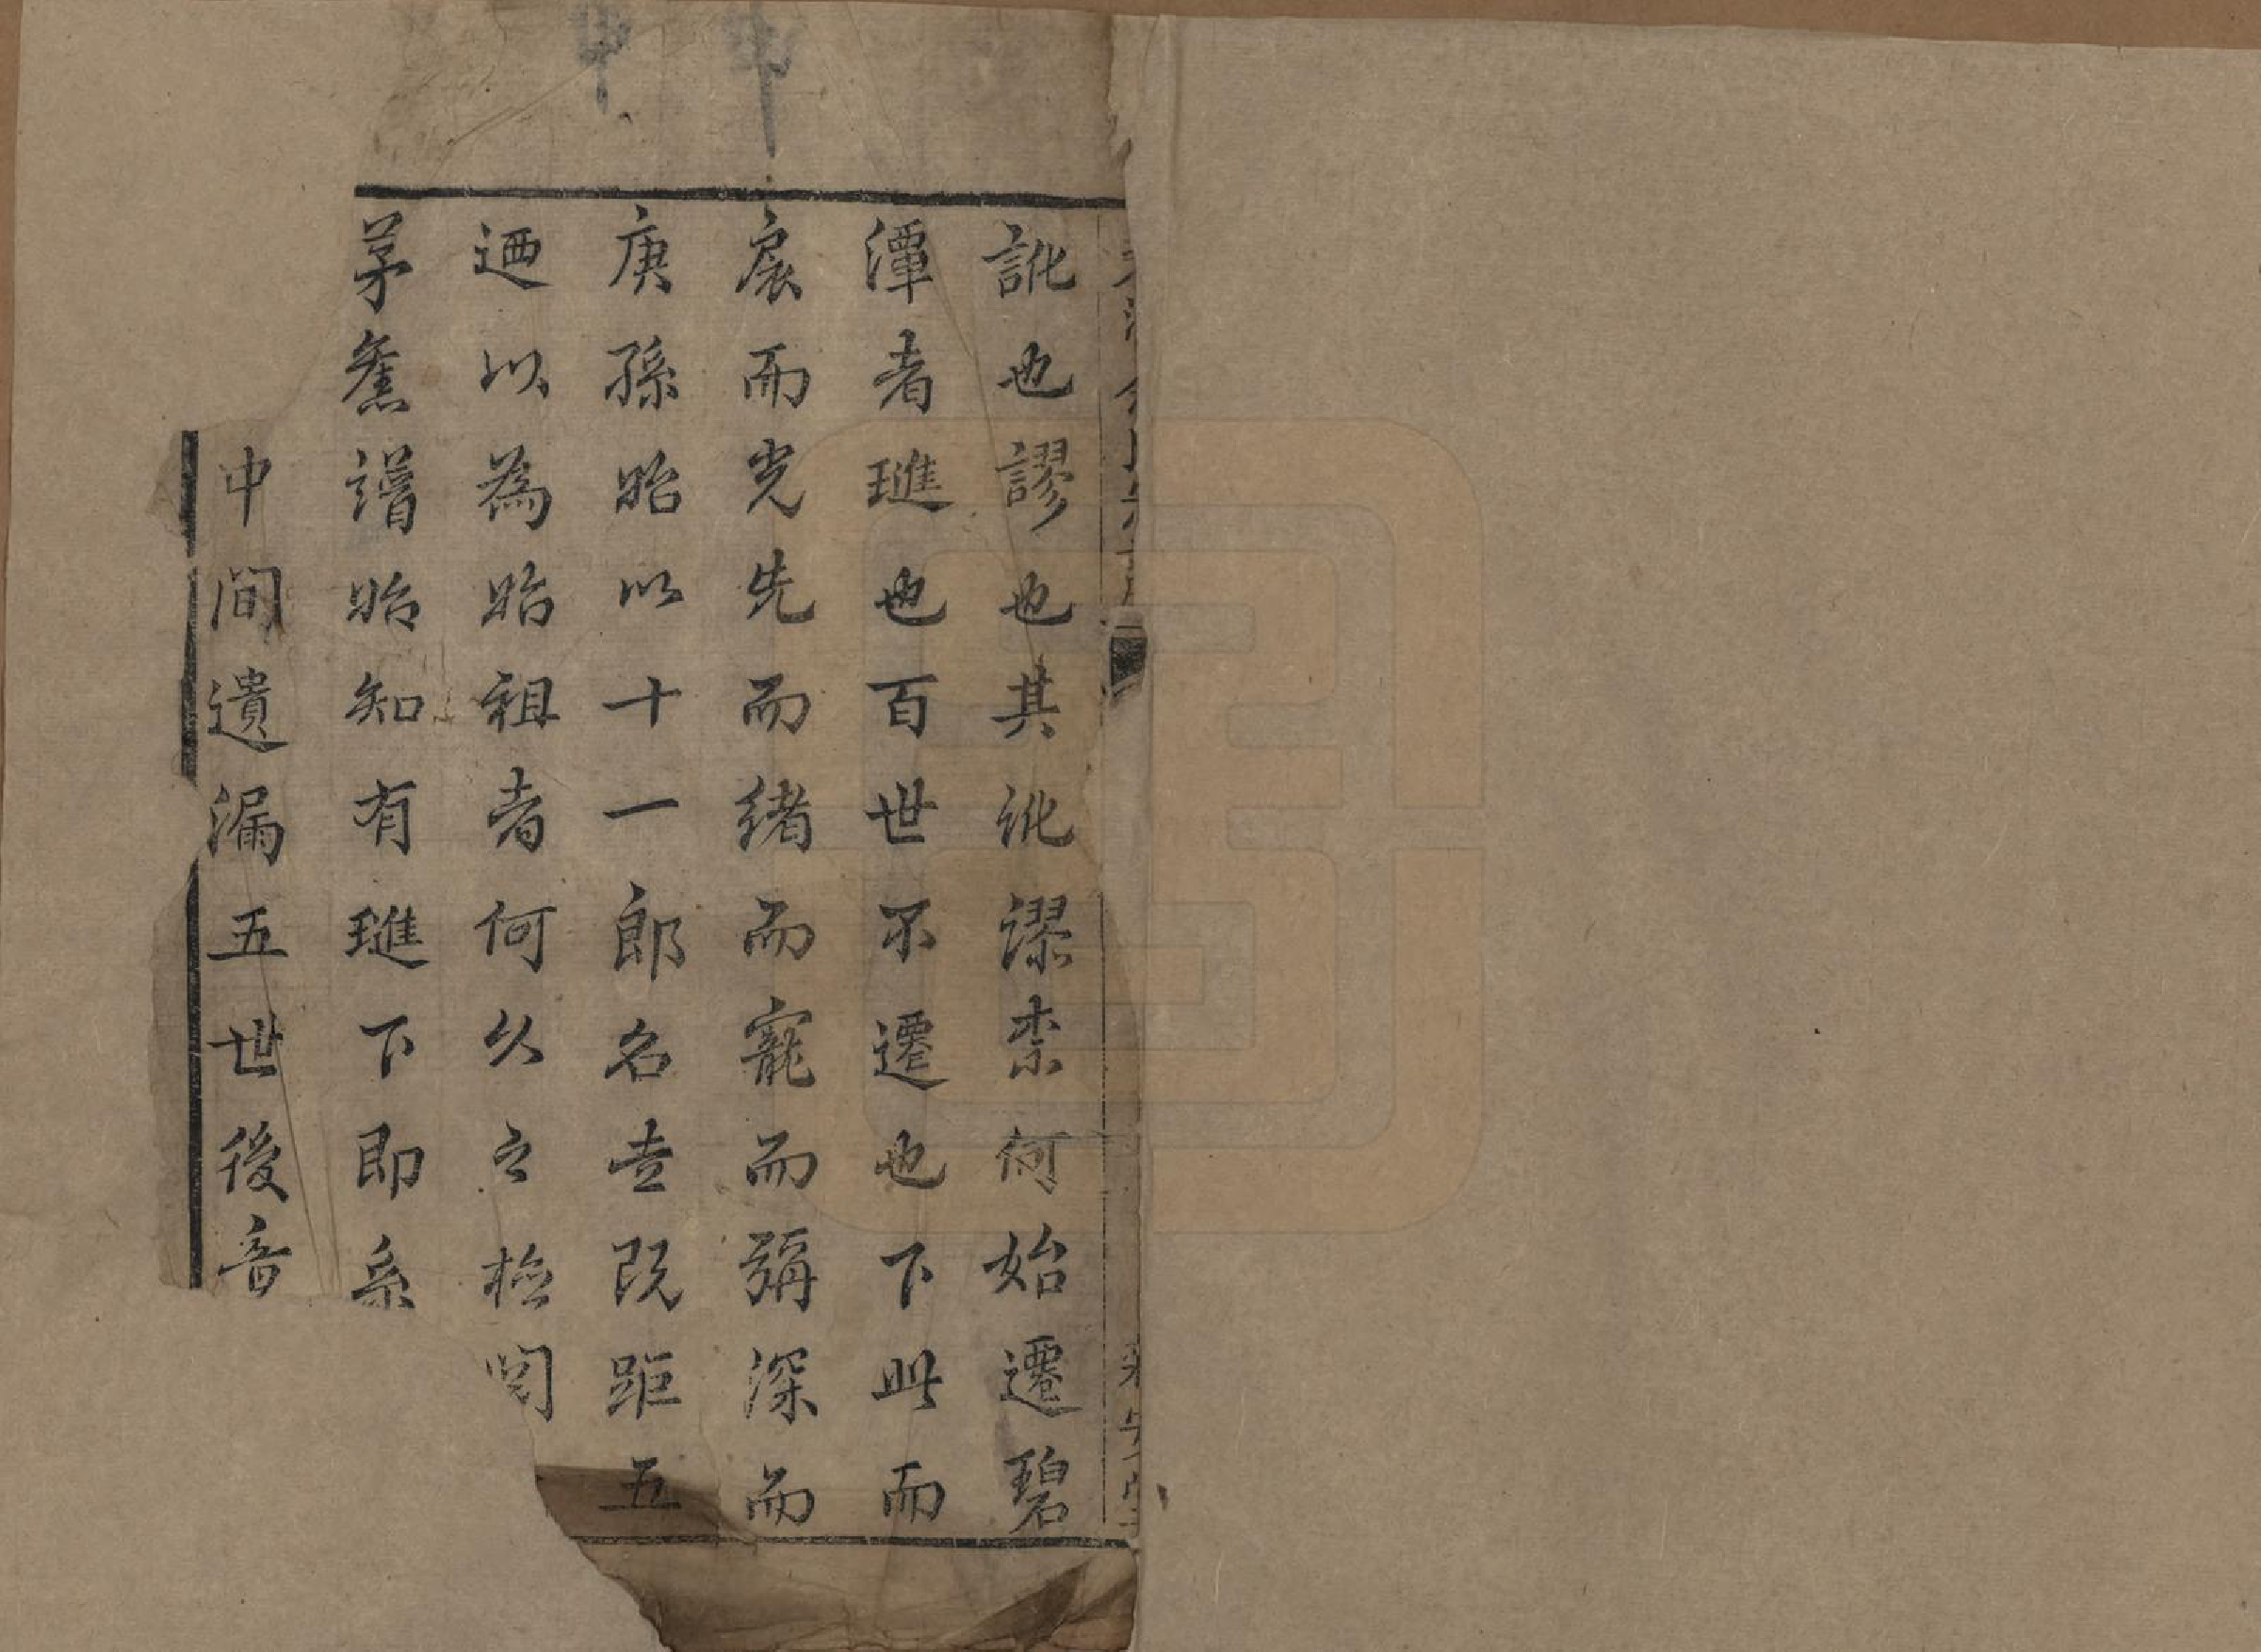 訛也謬也其訛謬柰何始遷碧
潭者璡也百世不遷也下此而
扆而光先而緒而寵而彌深而
庚孫始以十一郎名壴既距五
迺以為始祖者何久之檢閱
茅舊譜始知有璡下即系
中間遺漏五世後音